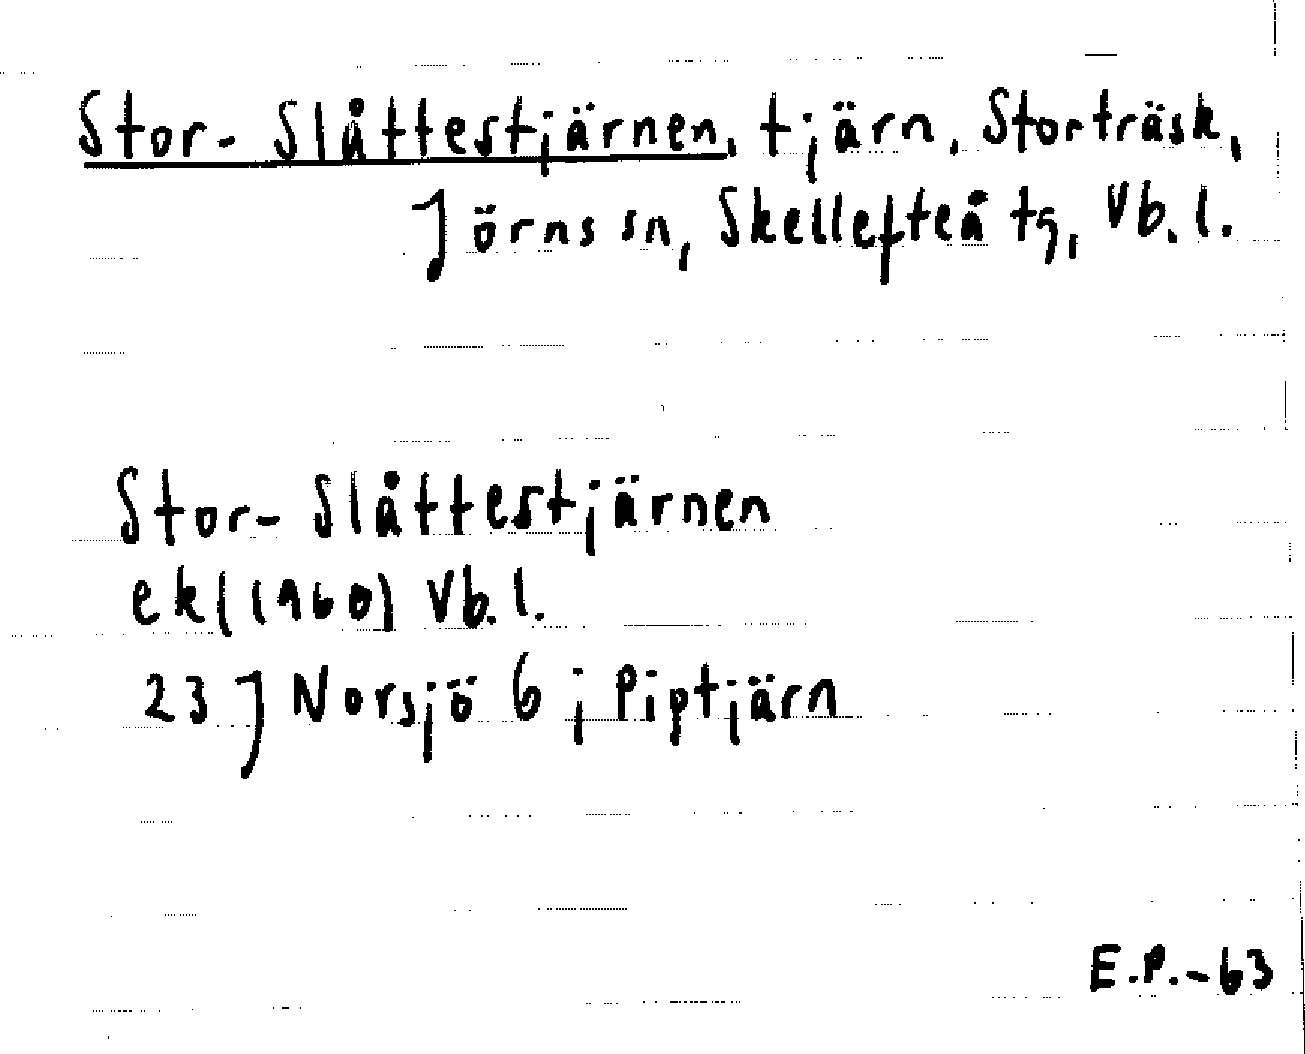 Stor-Slåttestjärnen, tjärn, Storträsk,
Jörns sn, Skellefteå tg, Vb.l.
Stor-Slåttestjärnen
ek (1960) Vb.l.
23 J Norsjö 6 j Piptjärn
E.P.-63